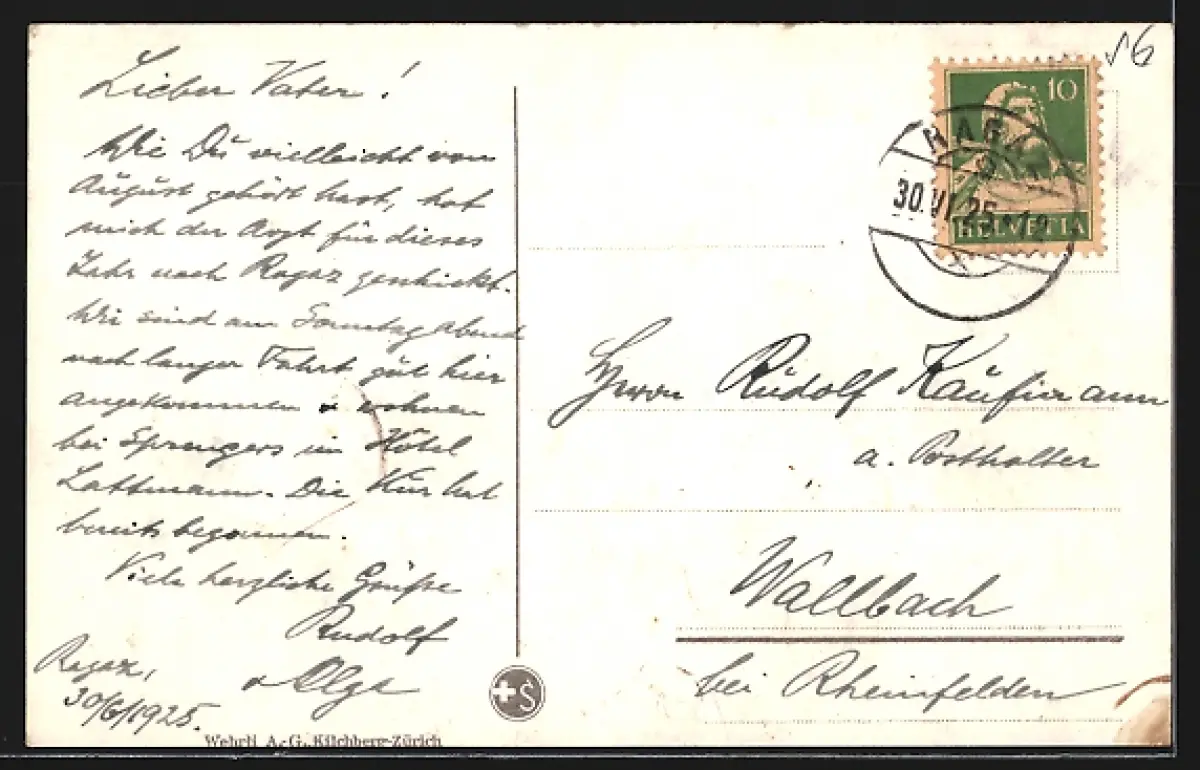 Lieber Vater!
Wie Du vielleicht von
August gehört hast, hat
mich der Arzt für dieses
Jahr nach Ragaz geschickt.
Wir sind am Sonntag abend
nach langer Fahrt gut hier
angekommen & wohnen
bei Sprengers im Hôtel
Lattmann. Die Kur hat
bereits begonnen.
Viele herzliche Grüsse
Rudolf
& Olga
Ragaz,
30/6/1925.
Wehrli A.-G., Kilchberg-Zürich
S
56
10
HELVETIA
RAGAZ
30.VI.25
Herrn Rudolf Kaufmann
a. Posthalter
Wallbach
bei Rheinfelden